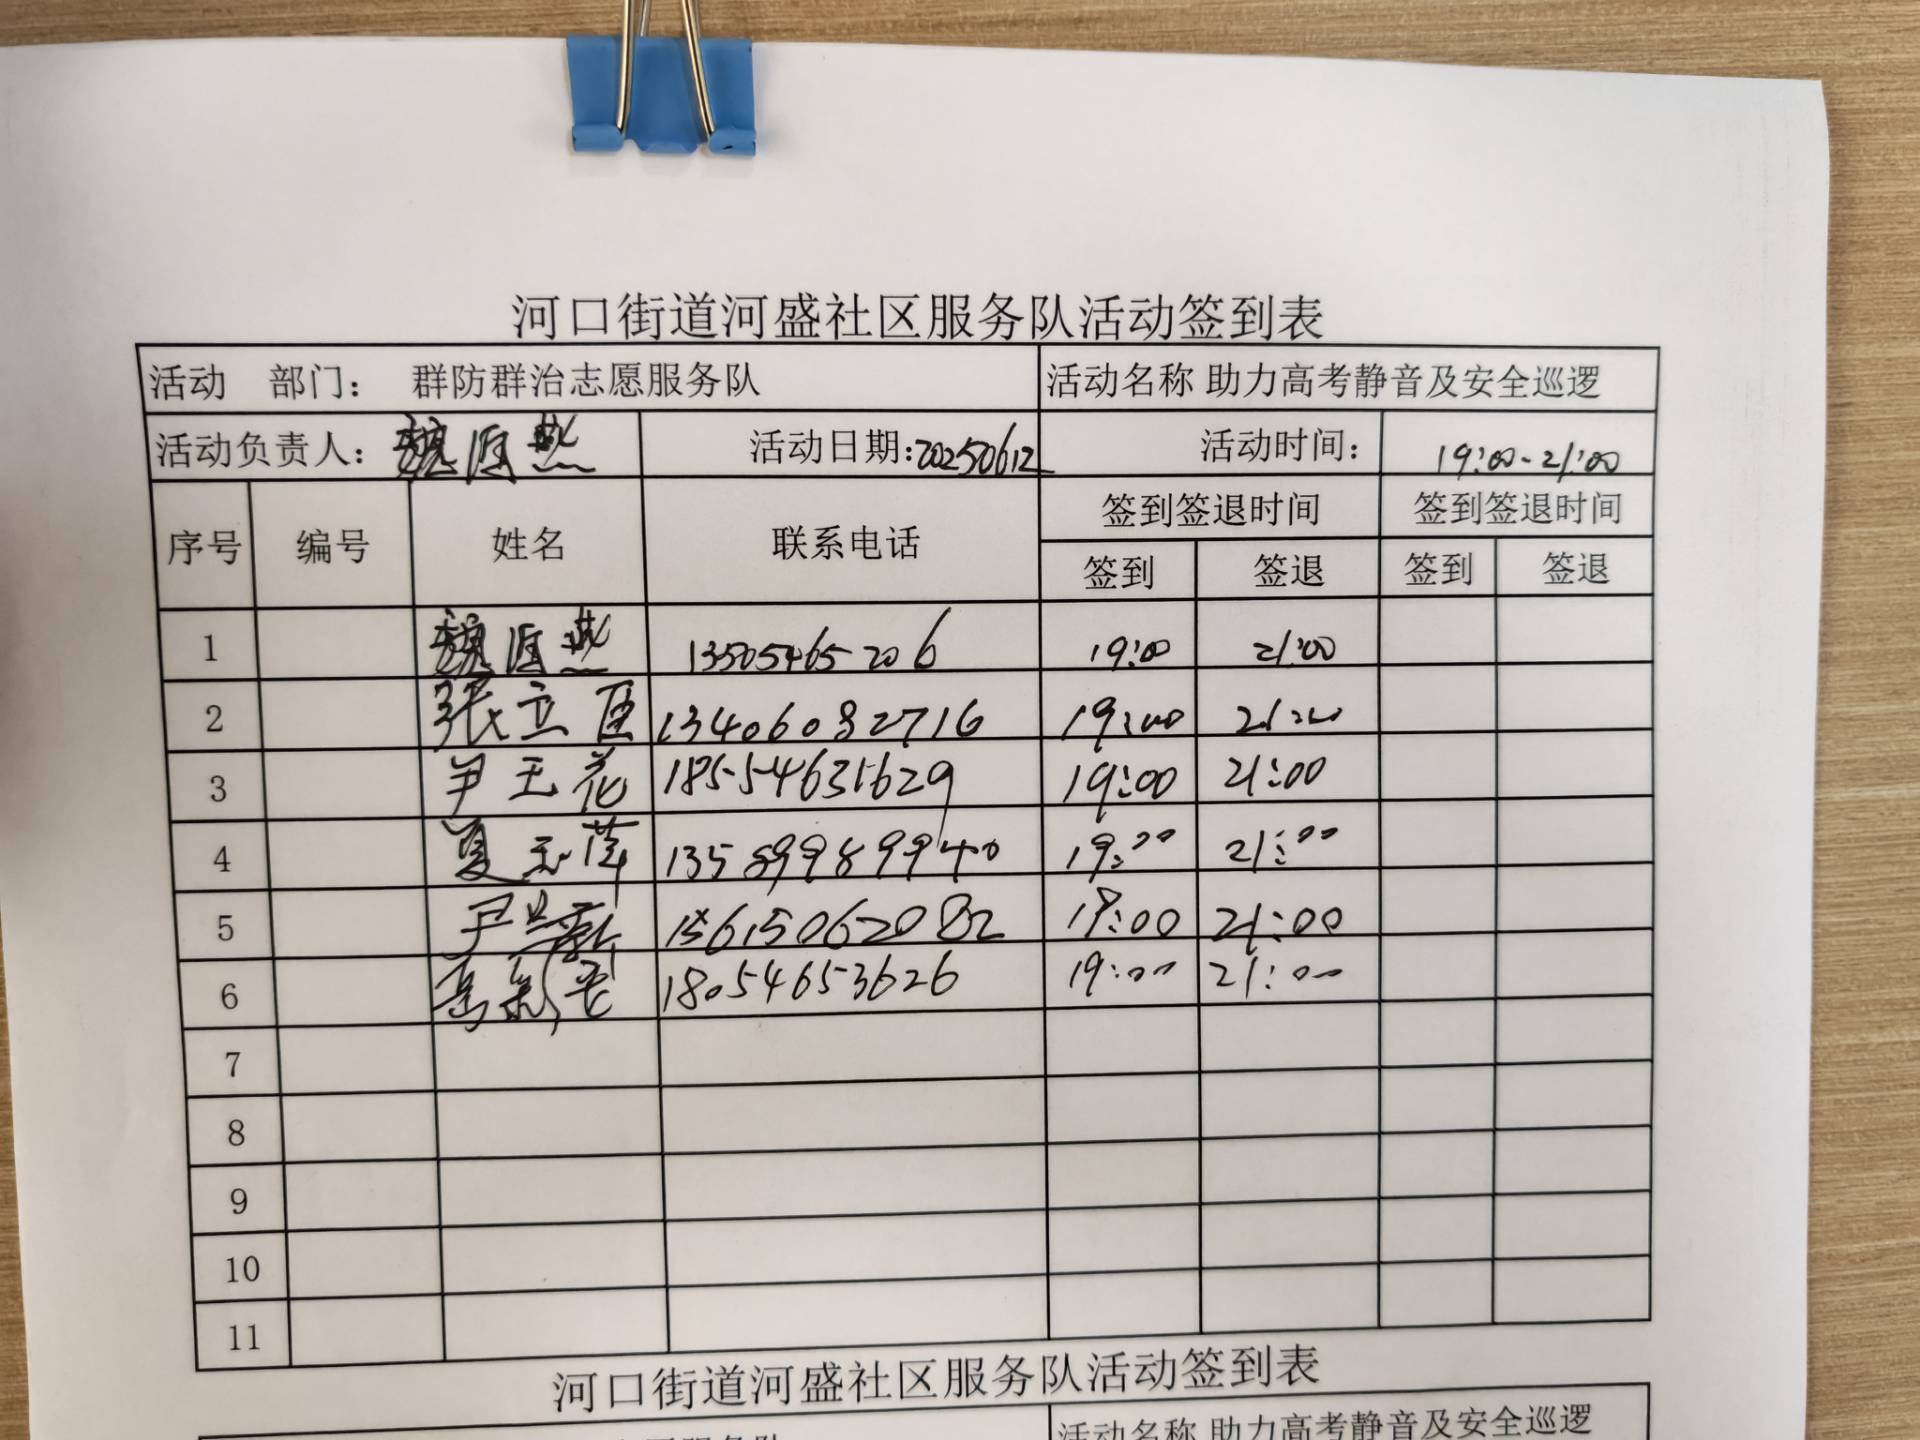 河口街道河盛社区服务队活动签到表
活动 部门： 群防群治志愿服务队 活动名称 助力高考静音及安全巡逻
活动负责人： 活动日期:20250612 活动时间： 19:00-21:00
序号 编号 姓名 联系电话 签到签退时间 签到签退时间
签到 签退 签到 签退
1 13505465206 19:00 21:00
2 张立 13406082716 19:00 21:00
3 尹玉花 18554631629 19:00 21:00
4 夏玉萍 13589989940 19:00 21:00
5 尹兰新 15615062082 19:00 21:00
6 18054653626 19:00 21:00
7
8
9
10
11
河口街道河盛社区服务队活动签到表
活动名称 助力高考静音及安全巡逻